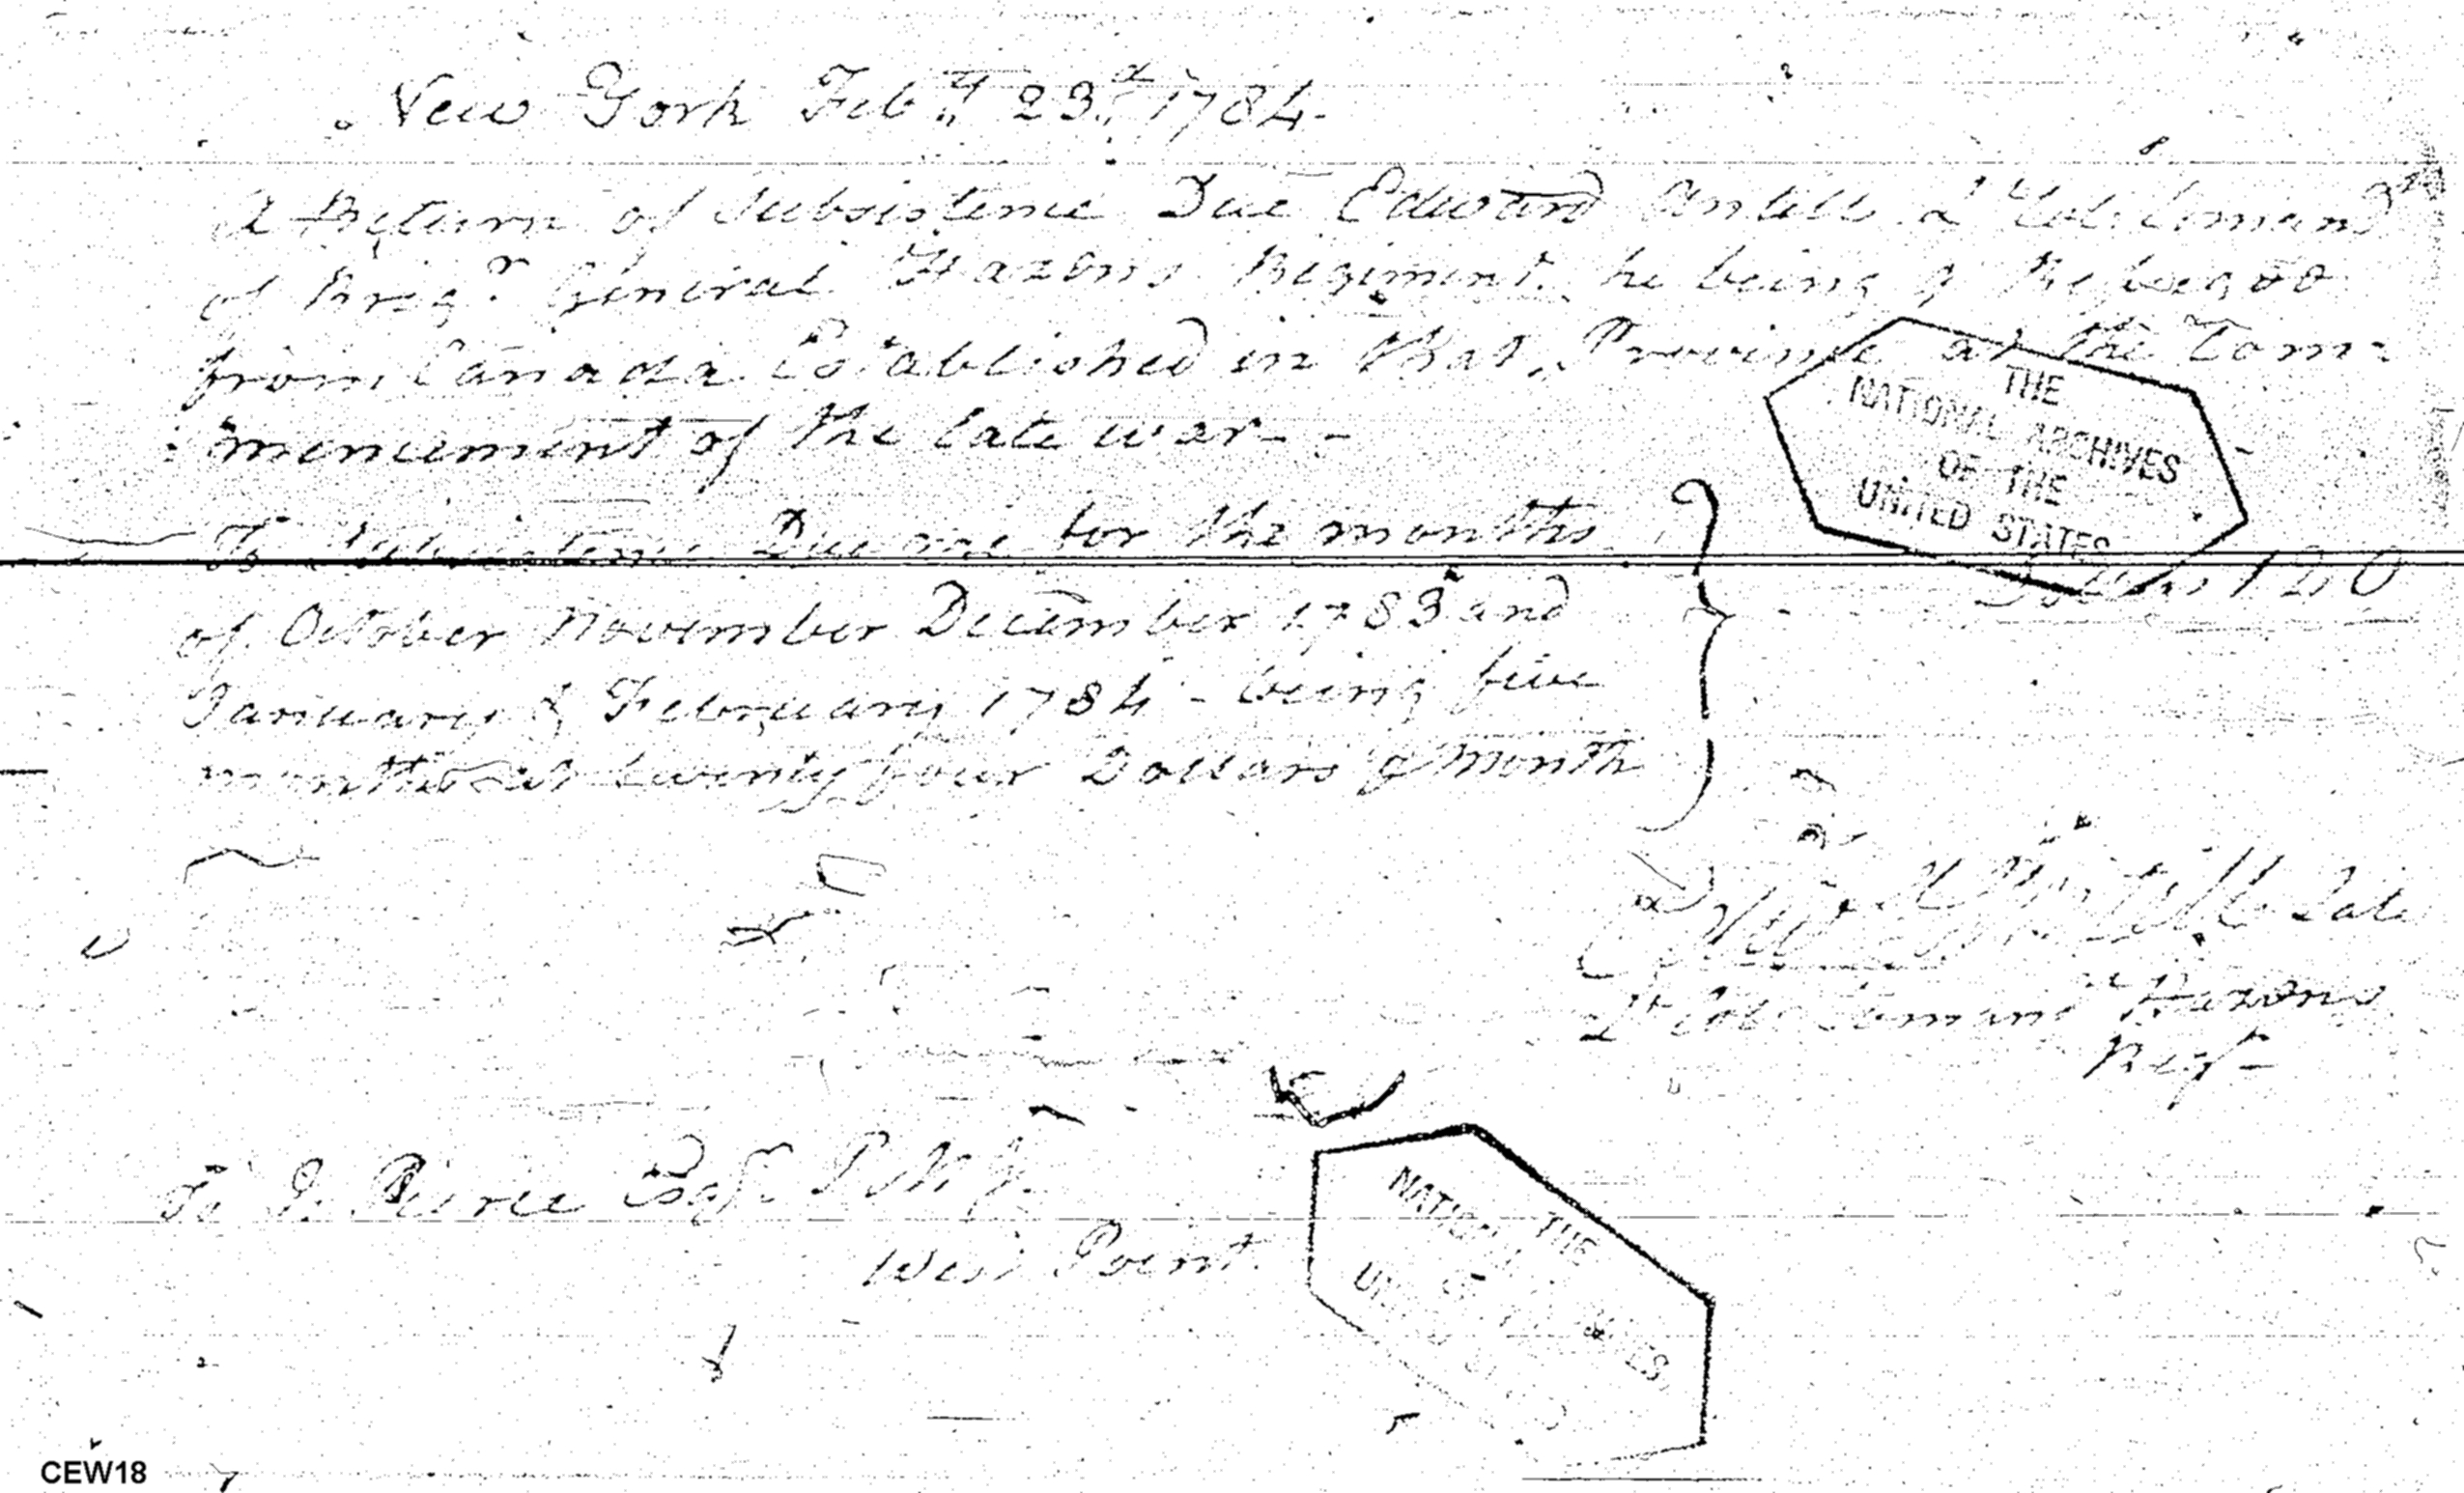 New York Feb.y 23.d 1784-
A Return of Subsistence Due Edward Antill Lt Col. Comand.t
of Brig.r General Hazens Regiment he being a Refugee
from Canada Established in that Province at the Com=
mencement of the late war - -
THE
NATIONAL ARCHIVES
OF THE
UNITED STATES
To Subsistence Due me for the months
of October November December 1783 and
January & February 1784 - being five
months at twenty four Dollars p month
Dollars 120
Edwd Antill late
Lt Col. Comant Hazens
Regt
To J. Pierce Esqr. P M G.
West Point
THE
NATIONAL
UNITED
CEW18